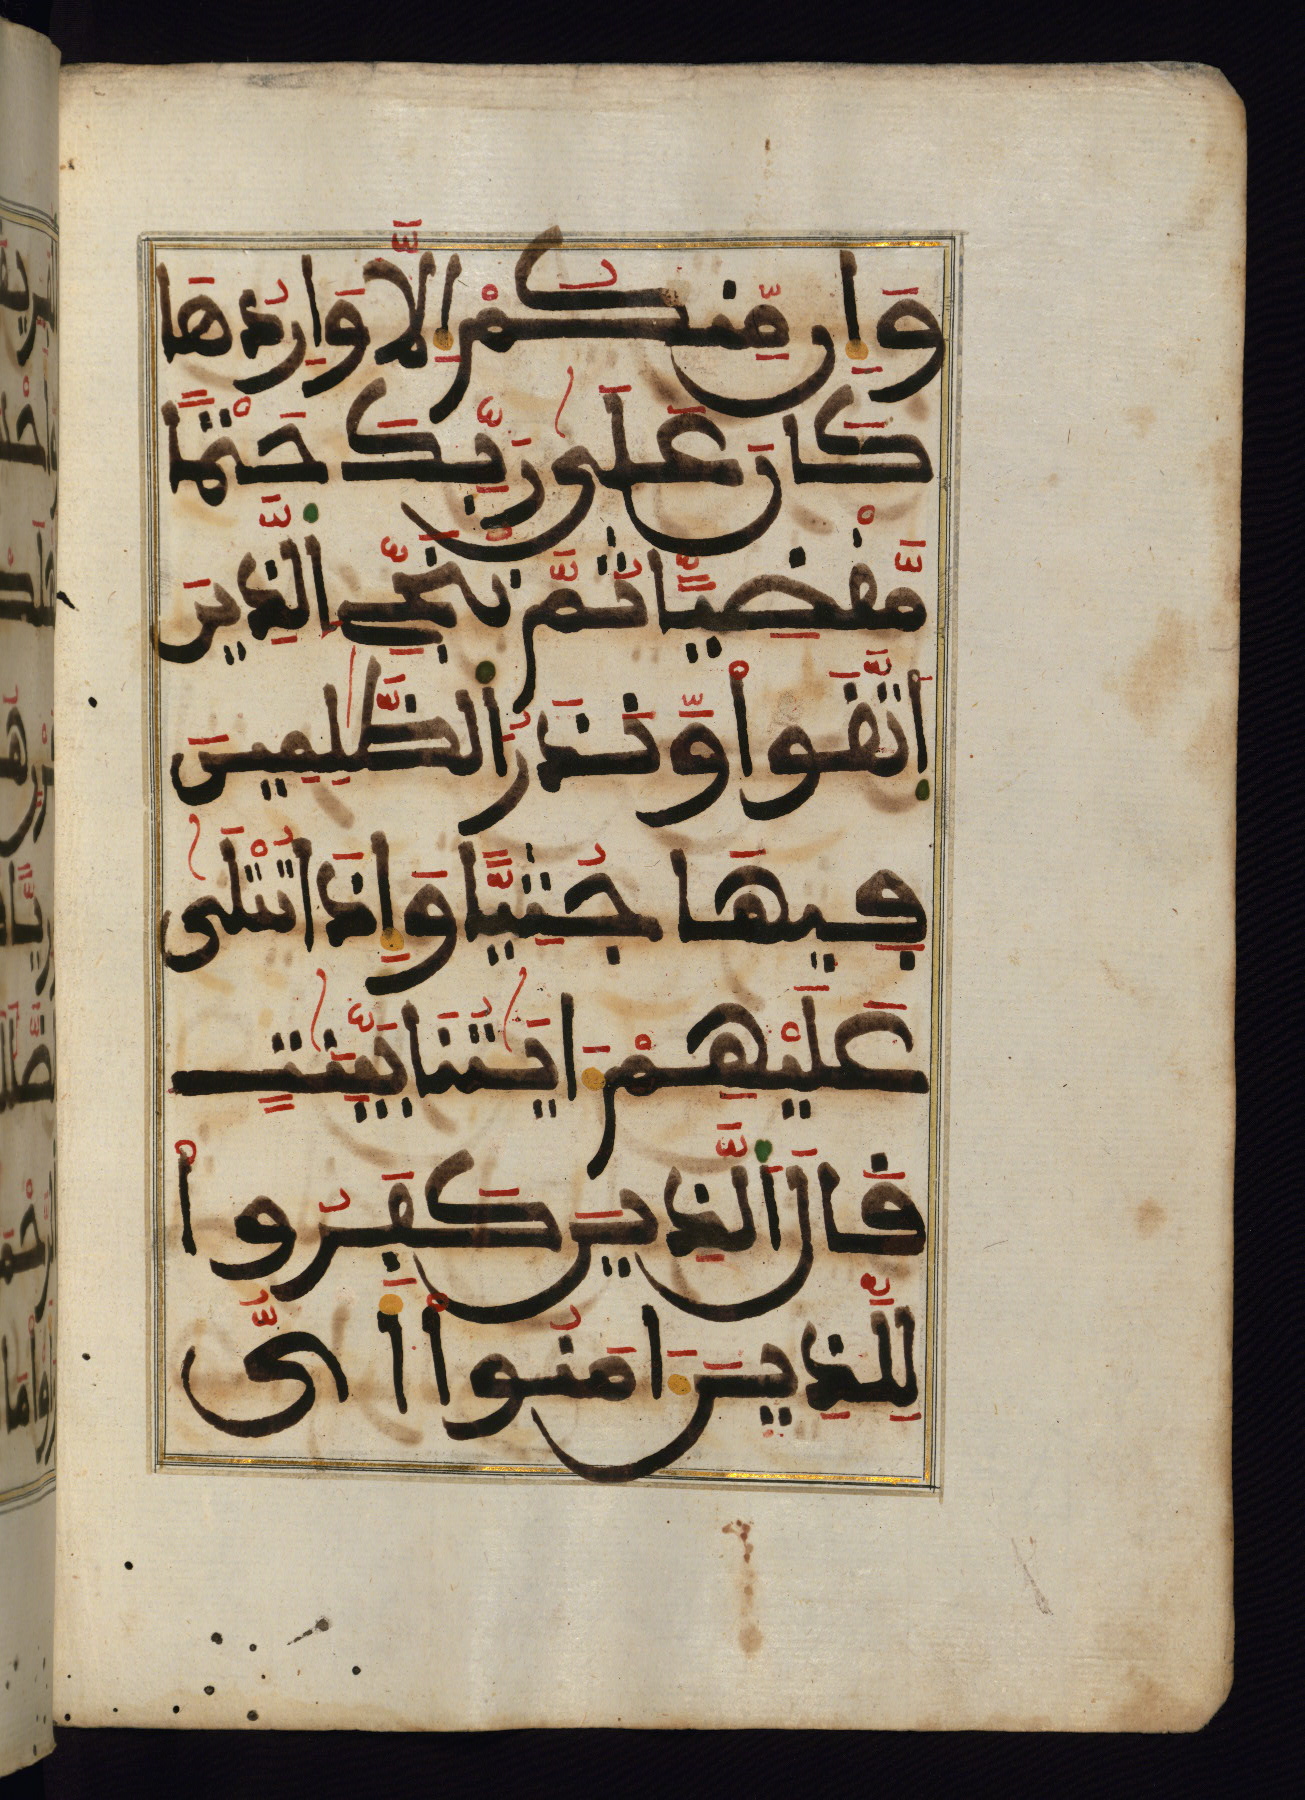 وَإِن مِّنكُمْ إِلَّا وَارِدُهَا
كَانَ عَلَىٰ رَبِّكَ حَتْمًا
مَّقْضِيًّا ثُمَّ نُنَجِّي الَّذِينَ
اتَّقَوا وَّنَذَرُ الظَّٰلِمِينَ
فِيهَا جُثِيًّا وَإِذَا تُتْلَىٰ
عَلَيْهِمْ ءَايَٰتُنَا بَيِّنَٰتٍ
قَالَ الَّذِينَ كَفَرُوا
لِلَّذِينَ ءَامَنُوا أَيُّ